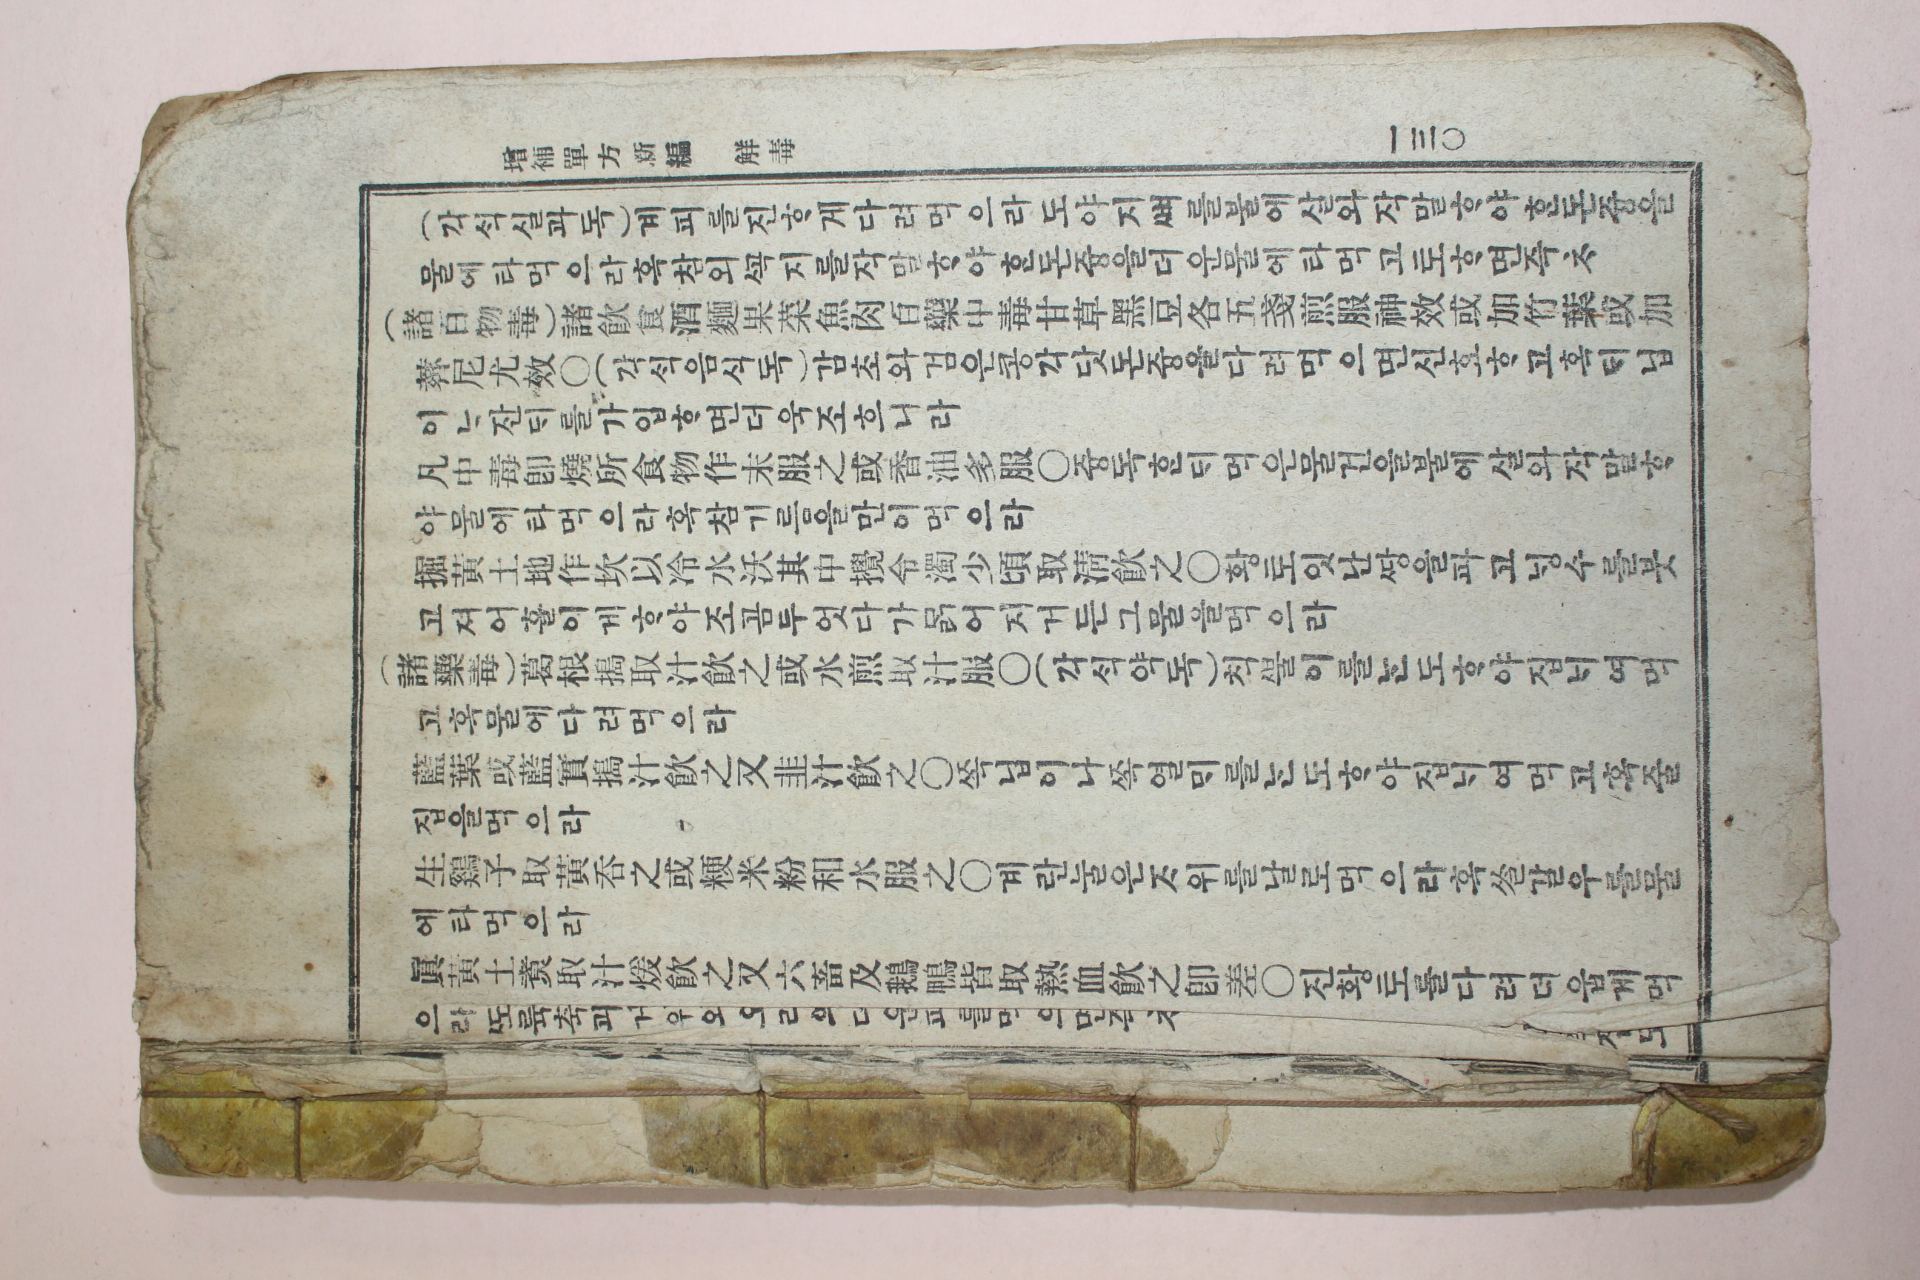 增補單方新編 解毒 一三〇
(각식실과독)계피를진ᄒᆞ게다려먹으라도야지ᄲᅧ를불에살와작말ᄒᆞ야ᄒᆞᆫ돈즁을
물에타먹으라혹참외ᄭᅩᆨ지를작말ᄒᆞ야ᄒᆞᆫ돈즁을더운물에타먹고토ᄒᆞ면즉ᄎᆞ
(諸百物毒)諸飮食酒麵果菜魚肉百藥中毒甘草黑豆各五戔煎服神效或加竹葉或加
薺苨尤效〇(각식음식독)감초와검은콩각닷돈즁을다려먹으면신효ᄒᆞ고혹ᄃᆡ닙
이ᄂᆞ잔ᄃᆡ를가입ᄒᆞ면더욱조흐니라
凡中毒卽燒所食物作末服之或香油多服〇즁독ᄒᆞᆫᄃᆡ먹은물건을불에살와작말ᄒᆞ
야물에타먹으라혹참기름을만이먹으라
掘黃土地作坎以冷水沃其中攪令濁少頃取淸飮之〇황토잇난ᄯᅡᆼ을파고닝수를붓
고져어흘이게ᄒᆞ야조곰두엇다가맑어지거든그물을먹으라
(諸藥毒)葛根搗取汁飮之或水煎取汁服〇(각식약독)칙ᄲᅮᆯ이를노도ᄒᆞ야집ᄂᆡ여먹
고혹물에다려먹으라
藍葉或藍實搗汁飮之又韭汁飮之〇ᄶᅩᆨ닙이나ᄶᅩᆨ열ᄆᆡ를노도ᄒᆞ야집ᄂᆡ여먹고혹졸
집을먹으라
生鷄子取黃呑之或粳米粉和水服之〇계란눌은ᄌᆞ위를날로먹으라혹ᄊᆞᆯ갈우를물
에타먹으라
眞黃土煑取汁煖飮之又六畜及鵝鴨皆取熱血飮之卽差〇진황토를다려더웁게먹
으라ᄯᅩ륙축피거우오오리의더운피를먹으면즉ᄎᆞ